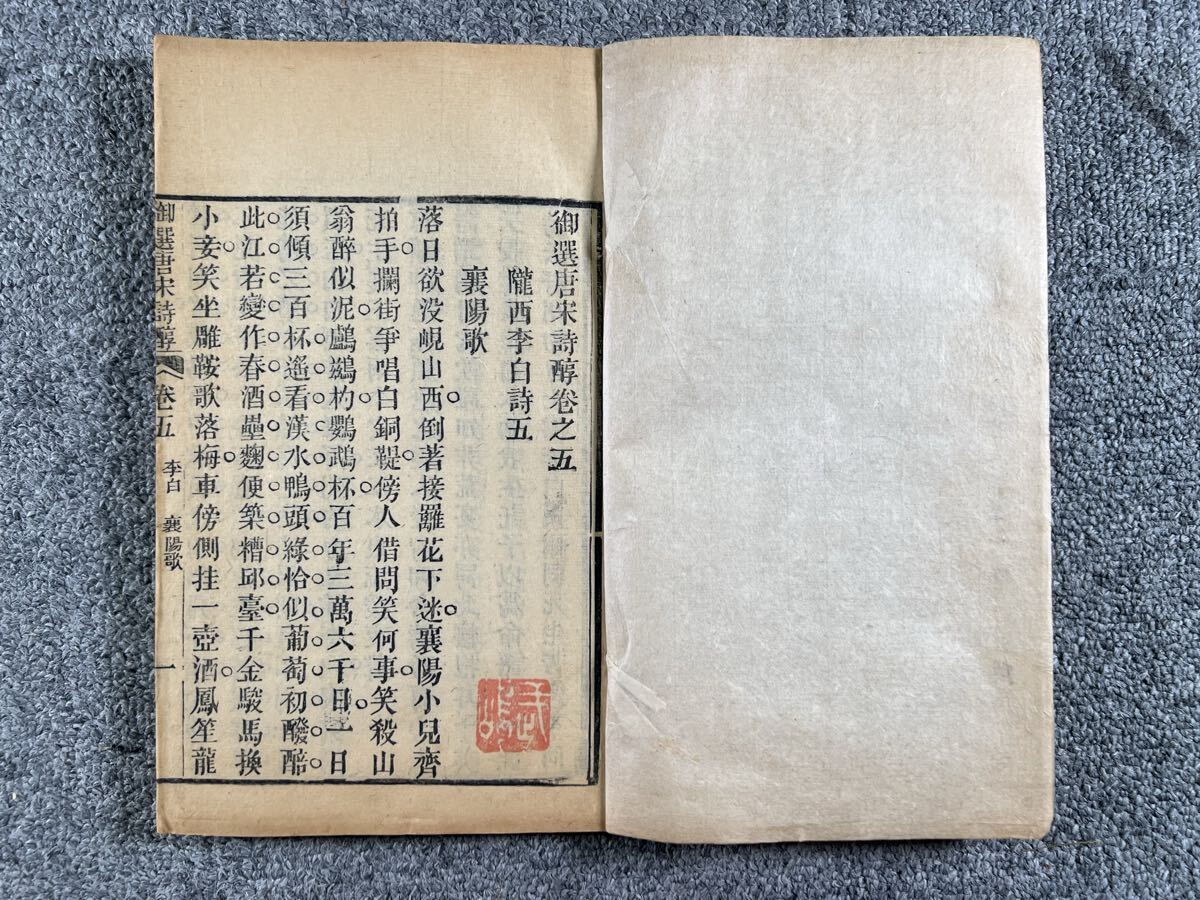 御選唐宋詩醇卷之五
隴西李白詩五
襄陽歌
落日欲没峴山西倒著接䍦花下迷襄陽小兒齊
拍手攔街爭唱白銅鞮傍人借問笑何事笑殺山
翁醉似泥鸕鷀杓鸚鵡杯百年三萬六千日一日
須傾三百杯遙看漢水鴨頭綠恰似葡萄初醱醅
此江若變作春酒壘麴便築糟邱臺千金駿馬換
小妾笑坐雕鞍歌落梅車傍側挂一壺酒鳳笙龍
御選唐宋詩醇 卷五 李白 襄陽歌 一